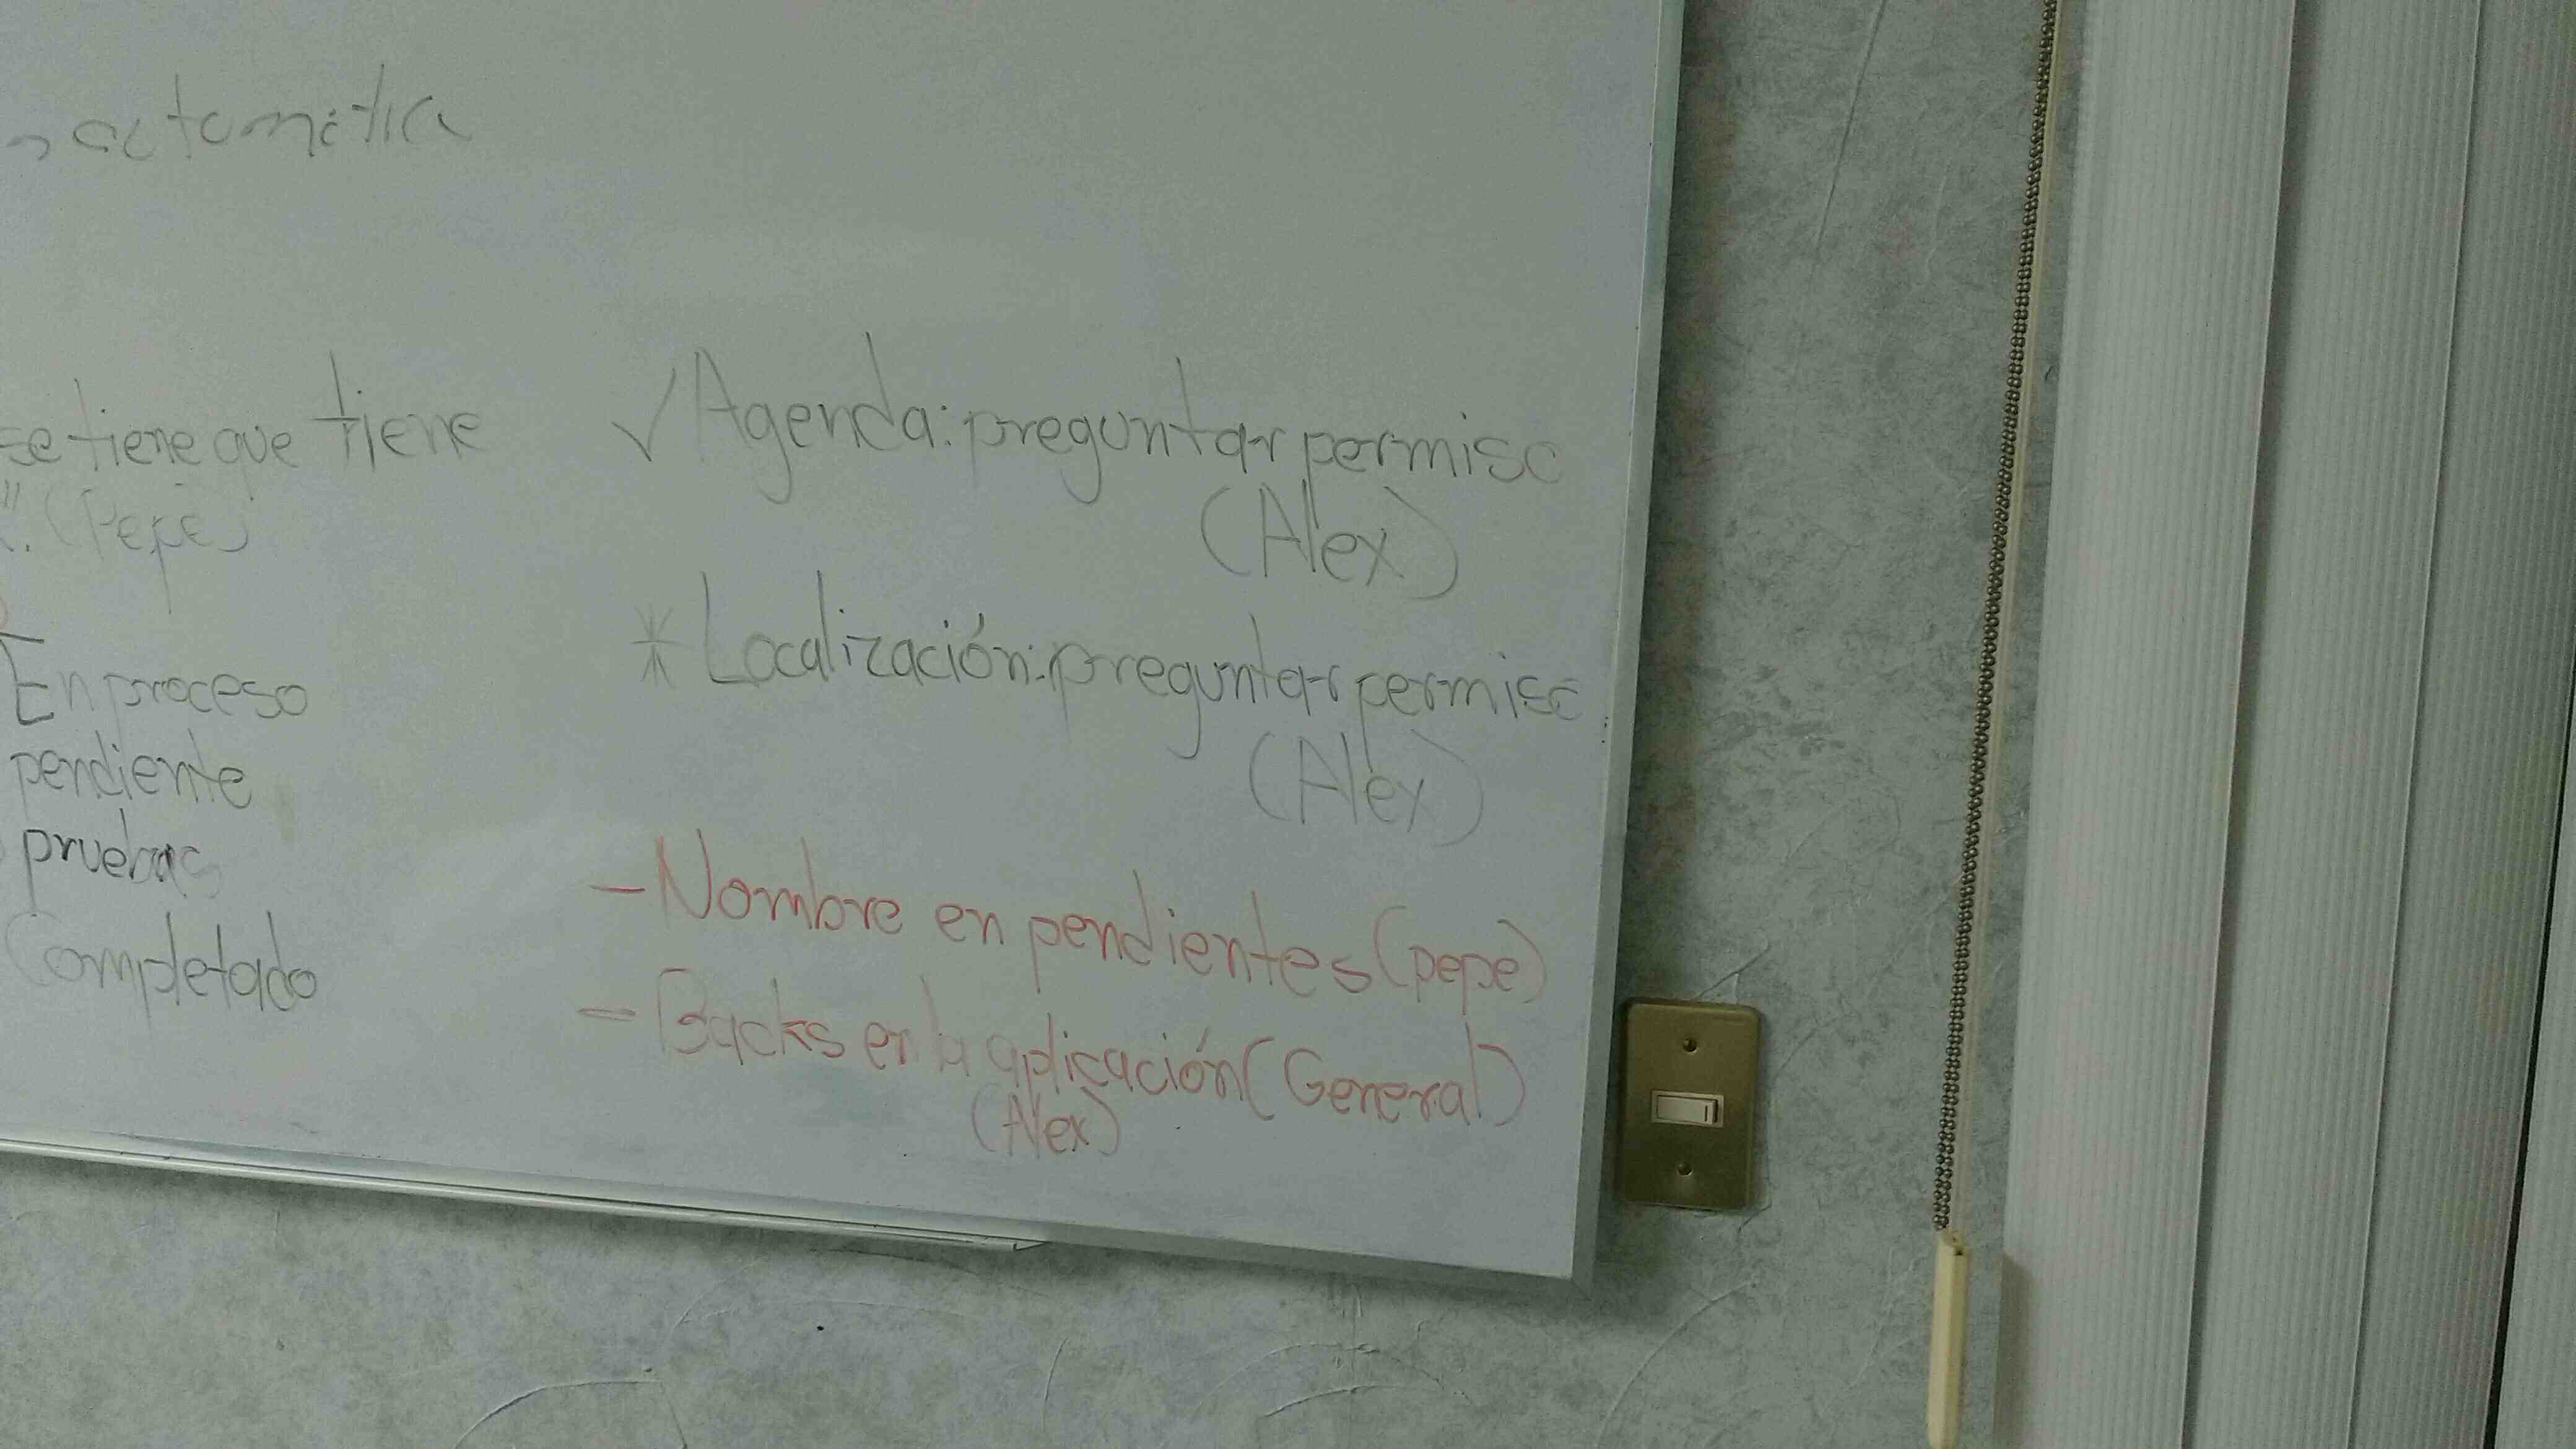 automática
se tiene que tiene
(Pepe)
En proceso
pendiente
pruebas
Completado
✓ Agenda: preguntar permiso
(Alex)
* Localización: preguntar permiso
(Alex)
- Nombre en pendientes (pepe)
- Backs en la aplicación (General)
(Alex)